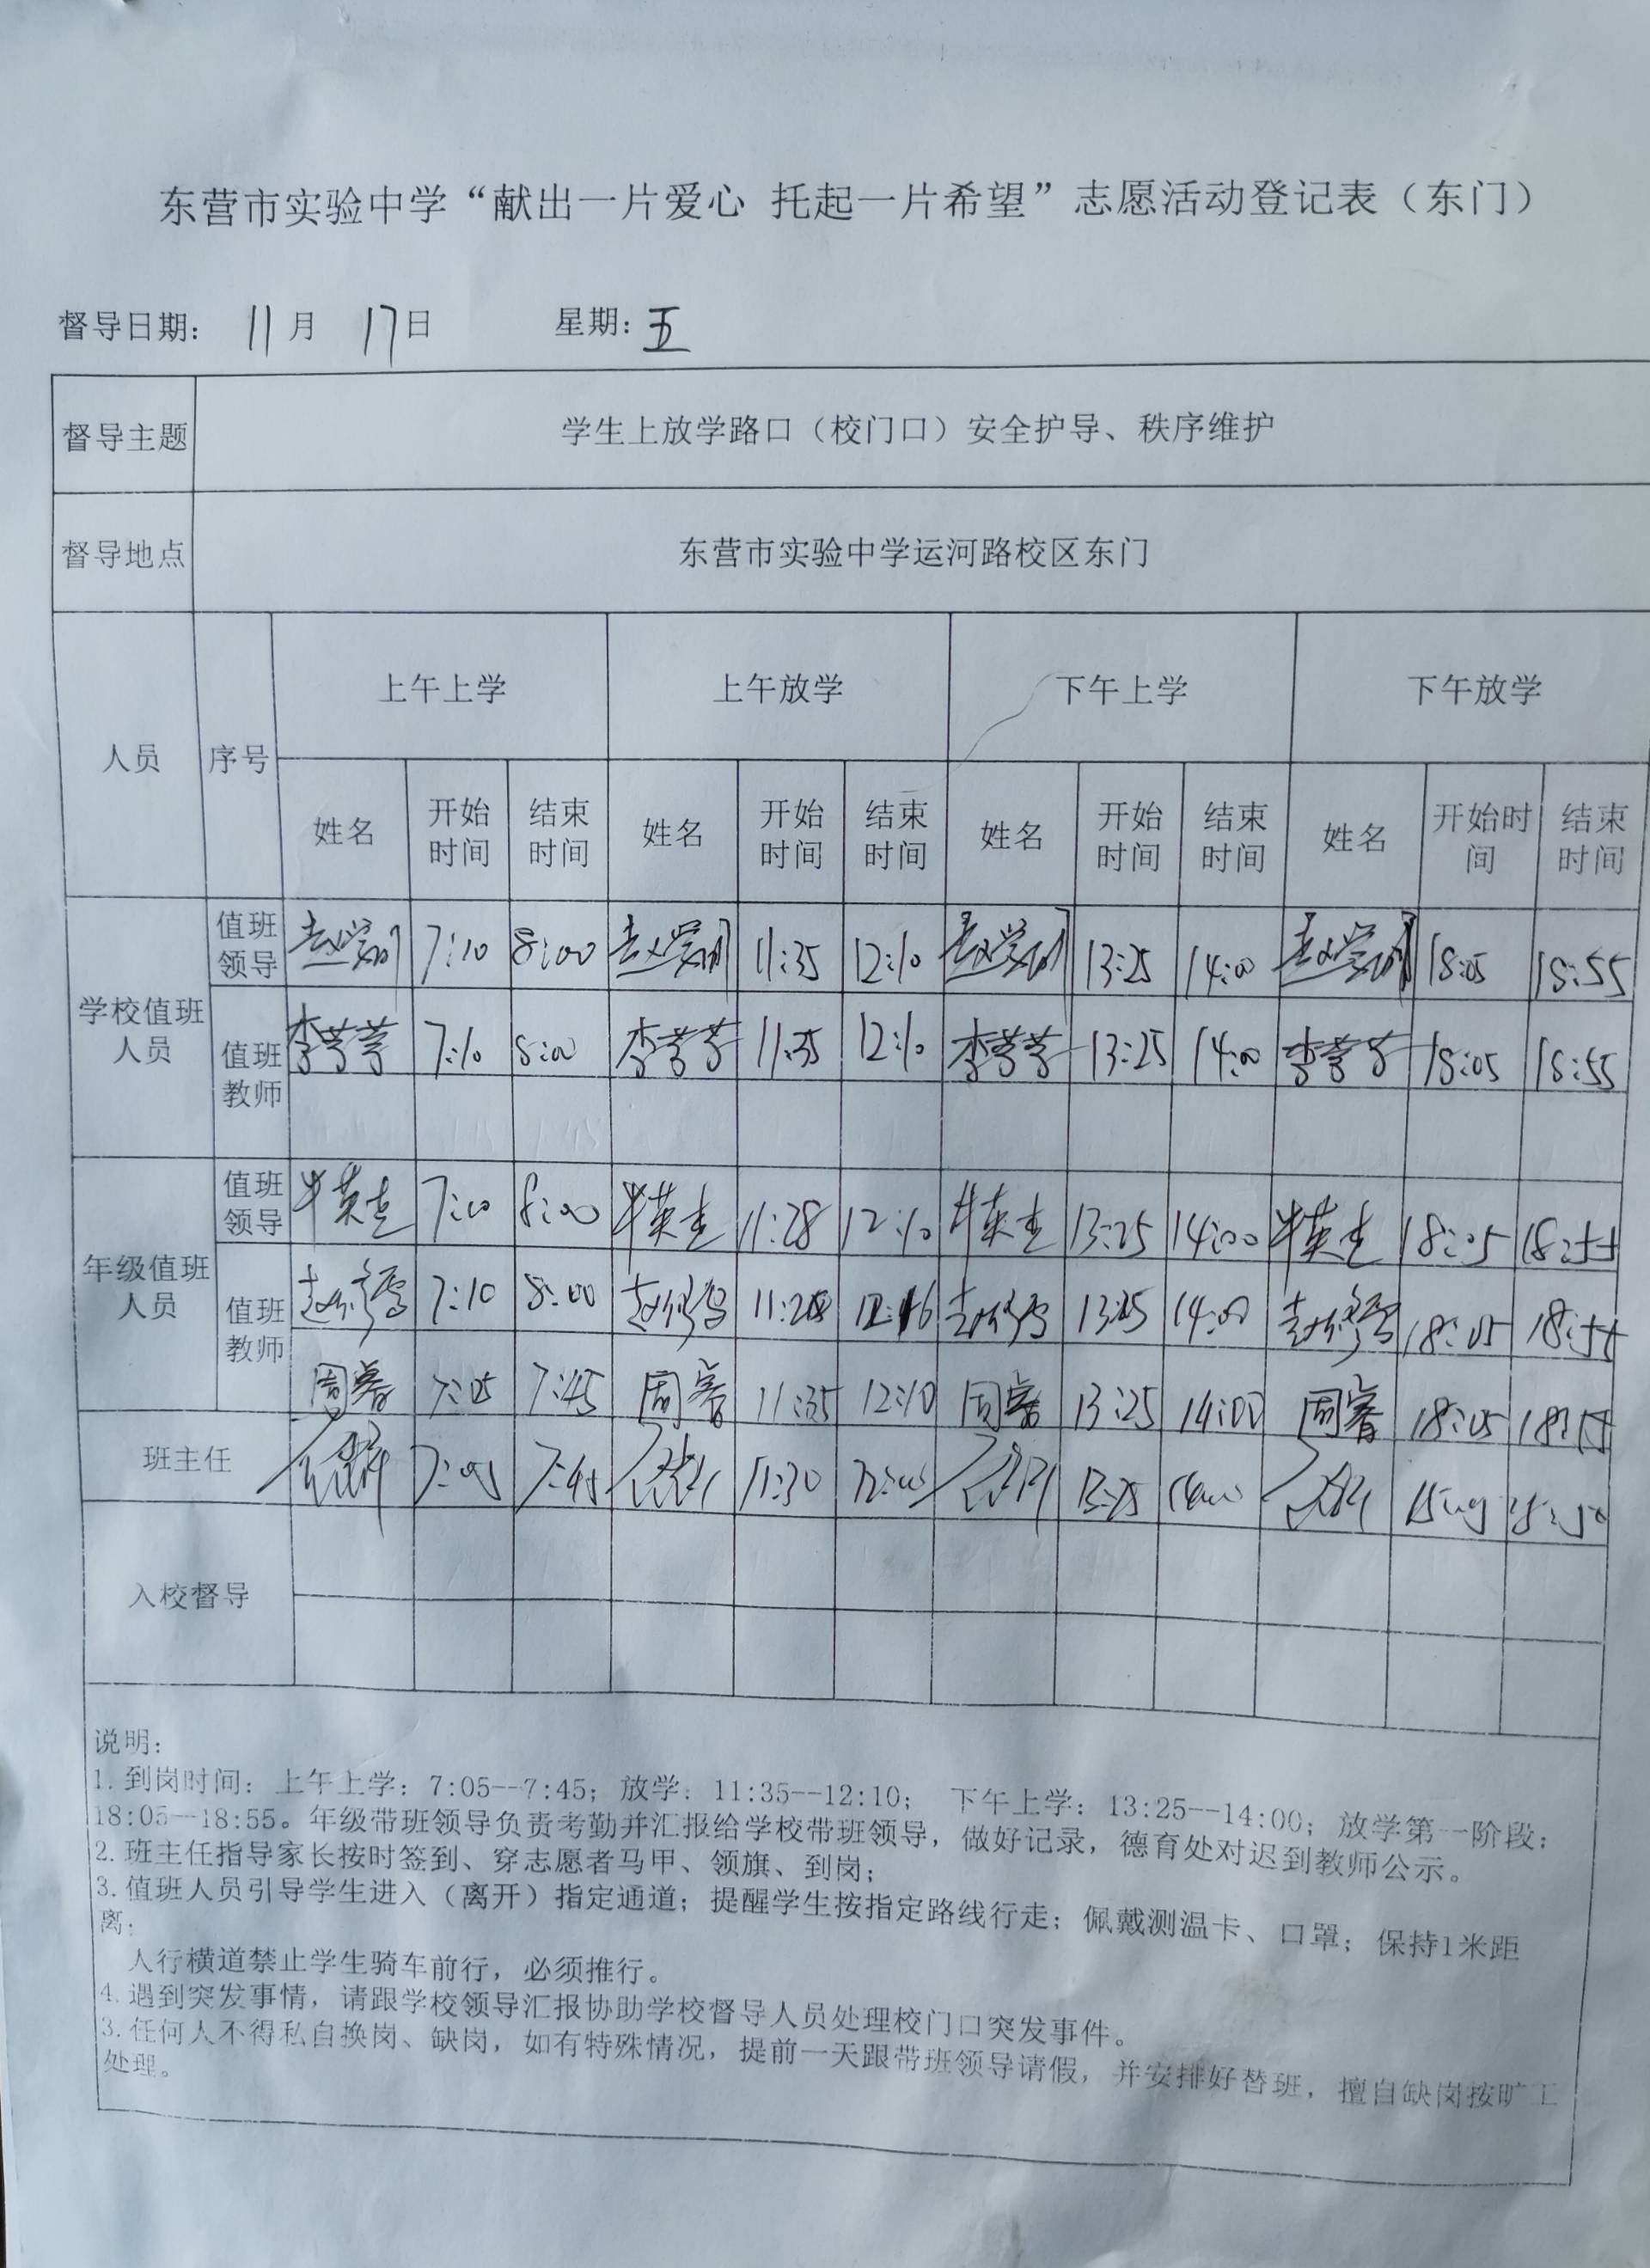 东营市实验中学“献出一片爱心 托起一片希望”志愿活动登记表（东门）
督导日期： 11月 17日 星期：五
督导主题 学生上放学路口（校门口）安全护导、秩序维护
督导地点 东营市实验中学运河路校区东门
人员 序号 上午上学 上午放学 下午上学 下午放学
姓名 开始时间 结束时间 姓名 开始时间 结束时间 姓名 开始时间 结束时间 姓名 开始时间 结束时间
学校值班人员
值班领导 7:10 8:00 11:35 12:10 13:25 14:00 18:05 18:55
值班教师 李芳芳 7:10 8:00 李芳芳 11:35 12:10 李芳芳 13:25 14:00 李芳芳 18:05 18:55
年级值班人员
值班领导 牛英杰 7:10 8:00 牛英杰 11:28 12:10 牛英杰 13:25 14:00 牛英杰 18:05 18:55
值班教师 7:10 8:00 11:28 13:25 14:00 18:05 18:55
周睿 7:05 7:45 周睿 11:35 12:10 周睿 13:25 14:00 周睿 18:05
班主任 7:05 7:45 11:30 12:00 13:25 14:00
入校督导
说明：
1. 到岗时间：上午上学：7:05--7:45；放学：11:35--12:10； 下午上学：13:25--14:00；放学第一阶段：
18:05--18:55。年级带班领导负责考勤并汇报给学校带班领导，做好记录，德育处对迟到教师公示。
2. 班主任指导家长按时签到、穿志愿者马甲、领旗、到岗；
3. 值班人员引导学生进入（离开）指定通道；提醒学生按指定路线行走；佩戴测温卡、口罩；保持1米距
离；
人行横道禁止学生骑车前行，必须推行。
4. 遇到突发事情，请跟学校领导汇报协助学校督导人员处理校门口突发事件。
3. 任何人不得私自换岗、缺岗，如有特殊情况，提前一天跟带班领导请假，并安排好替班，擅自缺岗按旷工
处理。